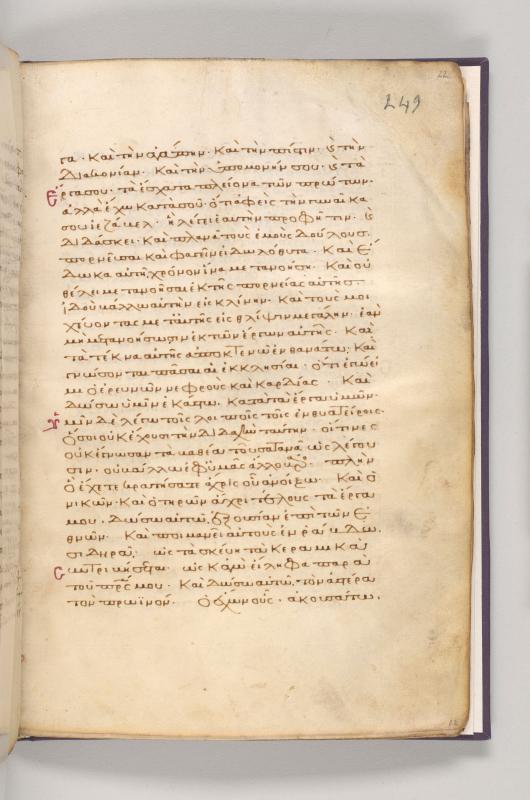 22
249
γα· Καὶ τὴν ἀγάπην· Καὶ τὴν πίστιν· καὶ τὴν
Διακονίαν· Καὶ τὴν ὑπομονήν σου· καὶ τὰ
Ἔργα σου· τὰ ἔσχατα πλείονα τῶν πρώτων·
ἀλλὰ ἔχω Κατὰ σοῦ· ὅτι ἀφεῖς τὴν γυναῖκα
σου ἰεζάβελ· ἡ λέγει ἑαυτὴν προφῆτιν· καὶ
διδάσκει· Καὶ πλανᾶ τοὺς ἐμοὺς Δούλους·
πορνεῦσαι Καὶ φαγεῖν εἰδωλόθυτα· Καὶ ἔ
Δωκα αὐτῇ χρόνον ἵνα μετανοήση· Καὶ οὐ
θέλει μετανοῆσαι ἐκ τῆς πορνείας αὐτῆς·
ἰδοὺ βάλλω αὐτὴν εἰς κλίνην· Καὶ τοὺς μοι
χεύοντας μετ᾽ αὐτῆς εἰς θλίψιν μεγάλην· ἐὰν
μὴ μετανοήσωσιν ἐκ τῶν ἔργων αὐτῆς· Καὶ
τὰ τέκνα αὐτῆς ἀποκτενῶ ἐν θανάτω· Καὶ
γνώσονται πᾶσαι αἱ ἐκκλησίαι· ὅτι ἐγώ εἰ
μι ὁ ἐρευνῶν νεφροὺς καὶ καρδίας· Καὶ
Δώσω ὑμῖν ἑκάστω Κατὰ τὰ ἔργα ὑμῶν·
ὑμῖν Δὲ λέγω τοῖς λοιποῖς τοῖς ἐν θυατείροις·
ὅσοι οὐκ ἔχουσι τὴν διδαχὴν ταύτην· οἵτινες
οὐκ ἔγνωσαν τὰ βαθέα τοῦ σατανᾶ ὡς λέγου
σιν· οὐ βάλλω ἐφ᾽ ὑμᾶς ἄλλο βάρος· πλὴν
ὃ ἔχετε κρατήσατε ἄχρις οὗ ἂν ἥξω· Καὶ ὁ
νικῶν· Καὶ ὁ τηρῶν ἄχρι τέλους τὰ ἔργα
μου· Δώσω αὐτῶ ἐξουσίαν ἐπὶ τῶν ἐ
θνῶν· Καὶ ποιμανεῖ αὐτοὺς ἐν ῥάβδω
σιδηρᾶ· ὡς τὰ σκεύη τὰ Κεραμικὰ
συντριβήσεται· ὡς Κἀγὼ εἴληφα παρὰ
τοῦ πρς μου· Καὶ Δώσω αὐτῶ τὸν ἀστέρα
τὸν πρωϊνόν· ὁ ἔχων οὖς· ἀκουσάτω·